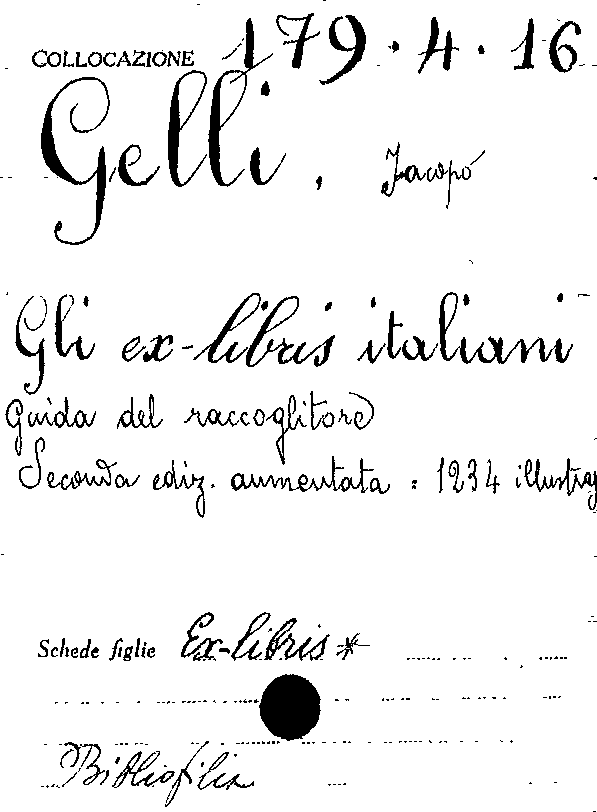 COLLOCAZIONE 179.4.16
Gelli, Jacopo
Gli ex-libris italiani
Guida del raccoglitore
Seconda ediz. aumentata : 1234 illustraz
Schede figlie Ex-libris *
Bibliofilia